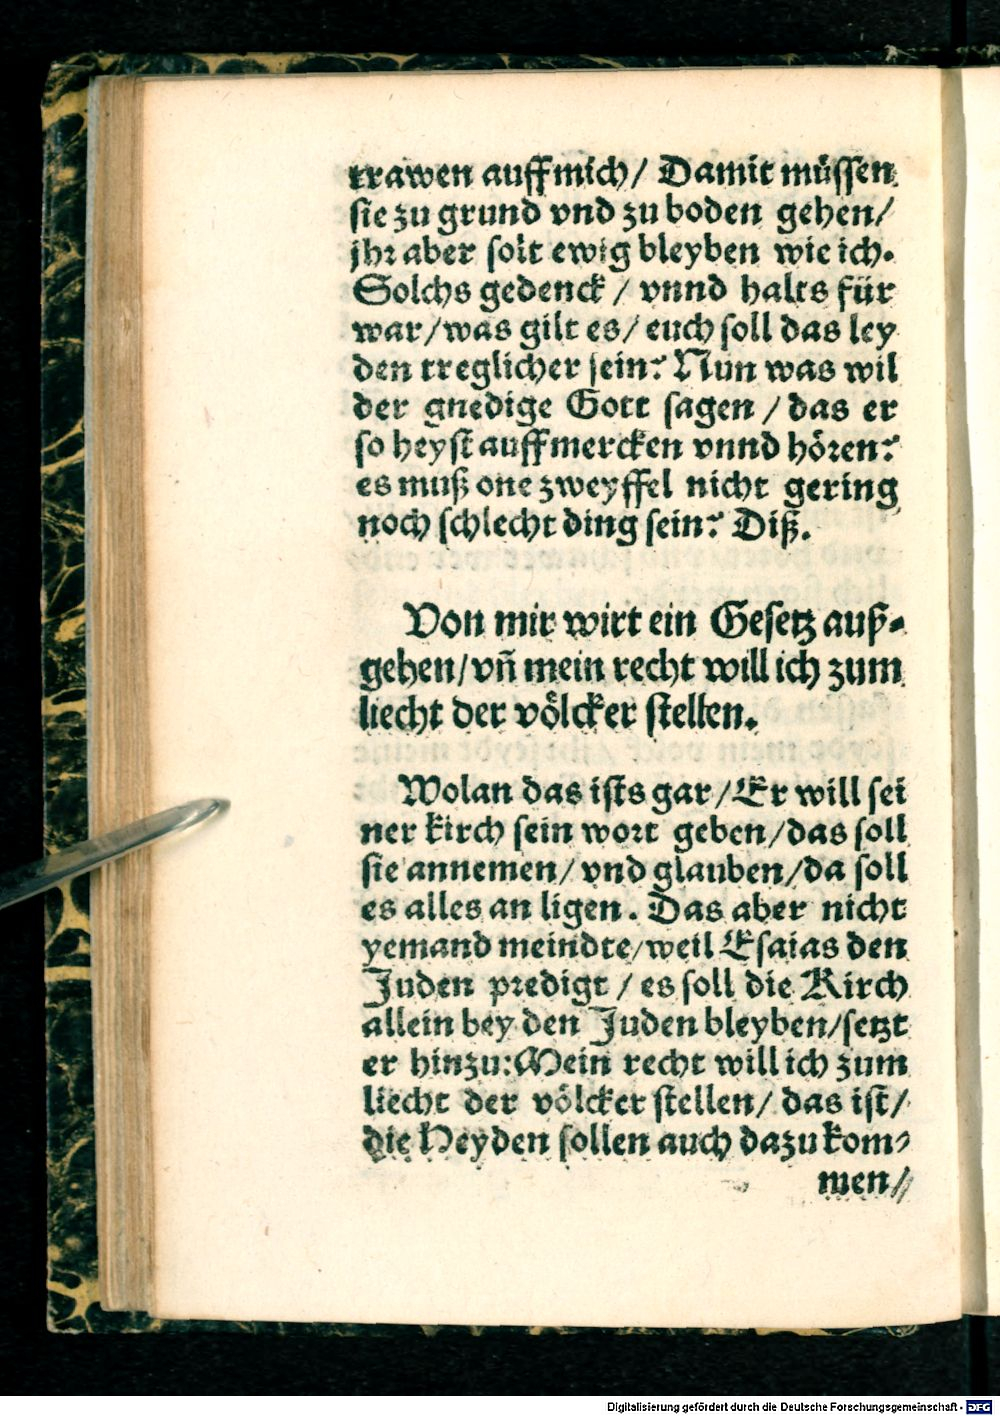 trawen auff mich/ Damit müssen
sie zu grund vnd zu boden gehen/
jhr aber solt ewig bleyben wie ich.
Solchs gedenck / vnnd halts für
war/was gilt es/ euch soll das ley
den treglicher sein? Nun was wil
der gnedige Gott sagen / das er
so heyst auffmercken vnnd hören?
es muß one zweyffel nicht gering
noch schlecht ding sein? Diß.
Von mir wirt ein Gesetz auß-
gehen/vñ mein recht will ich zum
liecht der völcker stellen.
Wolan das ists gar/Er will sei
ner kirch sein wort geben/das soll
sie annemen/vnd glauben/da soll
es alles an ligen. Das aber nicht
yemand meindte/weil Esaias den
Juden predigt / es soll die Kirch
allein bey den Juden bleyben/setzt
er hinzu:Mein recht will ich zum
liecht der völcker stellen/ das ist/
die Heyden sollen auch dazu kom-
men/
Digitalisierung gefördert durch die Deutsche Forschungsgemeinschaft - DFG